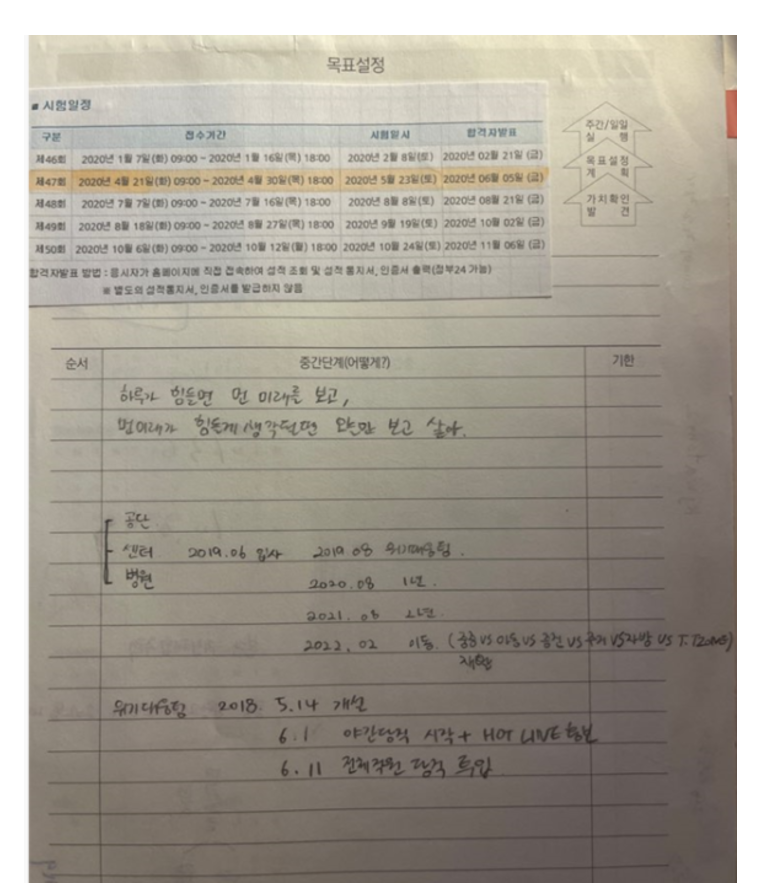 목표설정
■ 시험일정
구분 접수기간 시험일시 합격자발표
제46회 2020년 1월 7일(화) 09:00 ~ 2020년 1월 16일(목) 18:00 2020년 2월 8일(토) 2020년 02월 21일 (금)
제47회 2020년 4월 21일(화) 09:00 ~ 2020년 4월 30일(목) 18:00 2020년 5월 23일(토) 2020년 06월 05일 (금)
제48회 2020년 7월 7일(화) 09:00 ~ 2020년 7월 16일(목) 18:00 2020년 8월 8일(토) 2020년 08월 21일 (금)
제49회 2020년 8월 18일(화) 09:00 ~ 2020년 8월 27일(목) 18:00 2020년 9월 19일(토) 2020년 10월 02일 (금)
제50회 2020년 10월 6일(화) 09:00 ~ 2020년 10월 12일(월) 18:00 2020년 10월 24일(토) 2020년 11월 06일 (금)
합격자발표 방법 : 응시자가 홈페이지에 직접 접속하여 성적 조회 및 성적 통지서, 인증서 출력(정부24 가능)
※ 별도의 성적통지서, 인증서를 발급하지 않음
주간/일일
실 행
목표설정
계 획
가치확인
발 견
순서 중간단계(어떻게?) 기한
하루가 힘들면 먼 미래를 보고,
먼미래가 힘든게 생각되면 오늘만 보고 살아.
공단
센터 2019.06 입사 2019 08 위기대응팀.
병원 2020.08 1년.
2021.08 2년.
2022.02 이동. ( vs 아동 vs vs vs vs T.TZONE)
위기대응팀 2018. 5.14 개설
6.1 야간당직 시작 + HOT LINE 홍보
6.11 전체직원 당직 투입